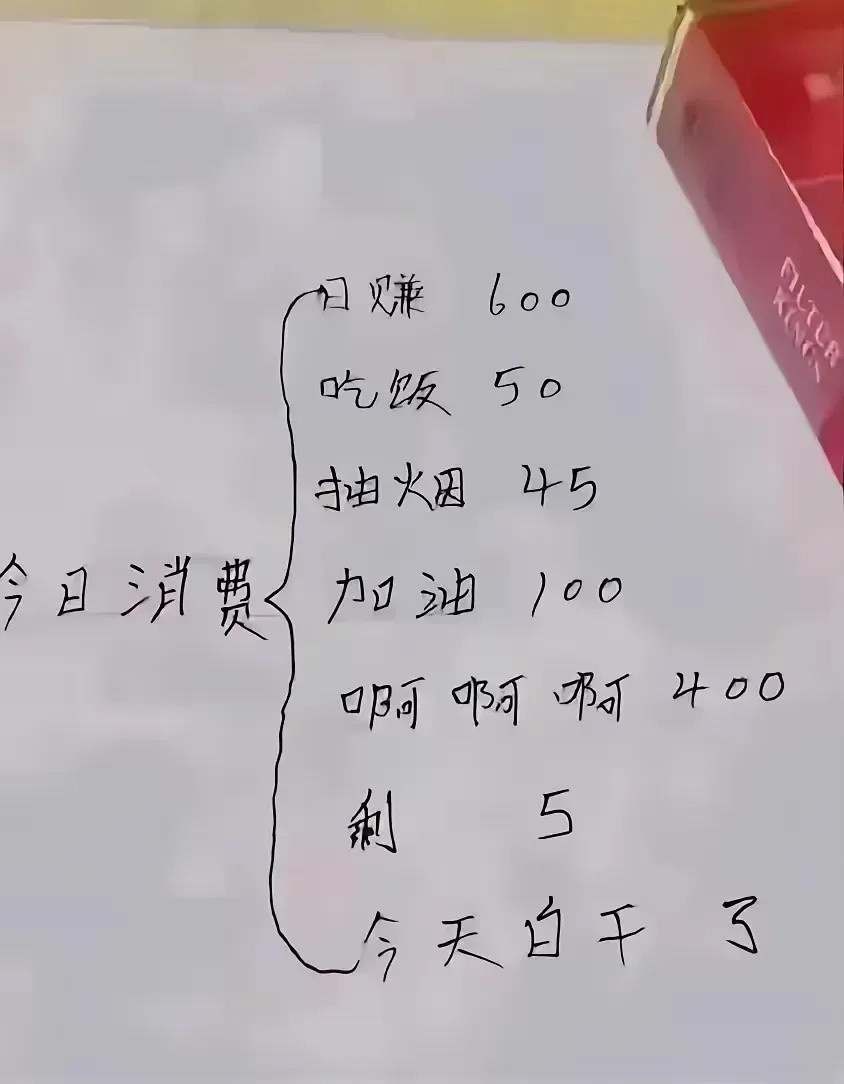 今日消费
日赚 600
吃饭 50
抽烟 45
加油 100
啊啊啊 400
剩 5
今天白干了
FILTER
KINGS